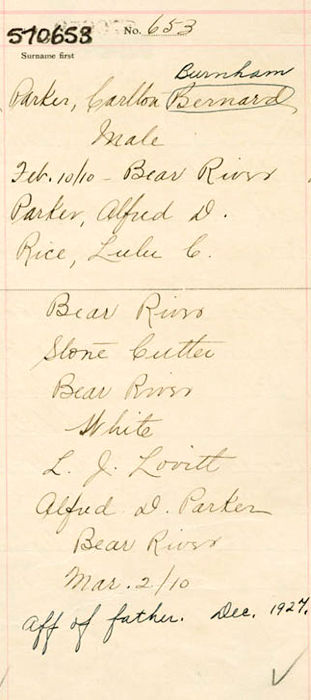 570653 No. 653
Surname first
Burnham
Parker, Carlton Bernard
Male
Feb. 10/10 - Bear River
Parker, Alfred D.
Rice, Lulu C.
Bear River
Stone Cutter
Bear River
White
L. J. Lovitt
Alfred D. Parker
Bear River
Mar. 2/10
Aff of father. Dec. 1927.